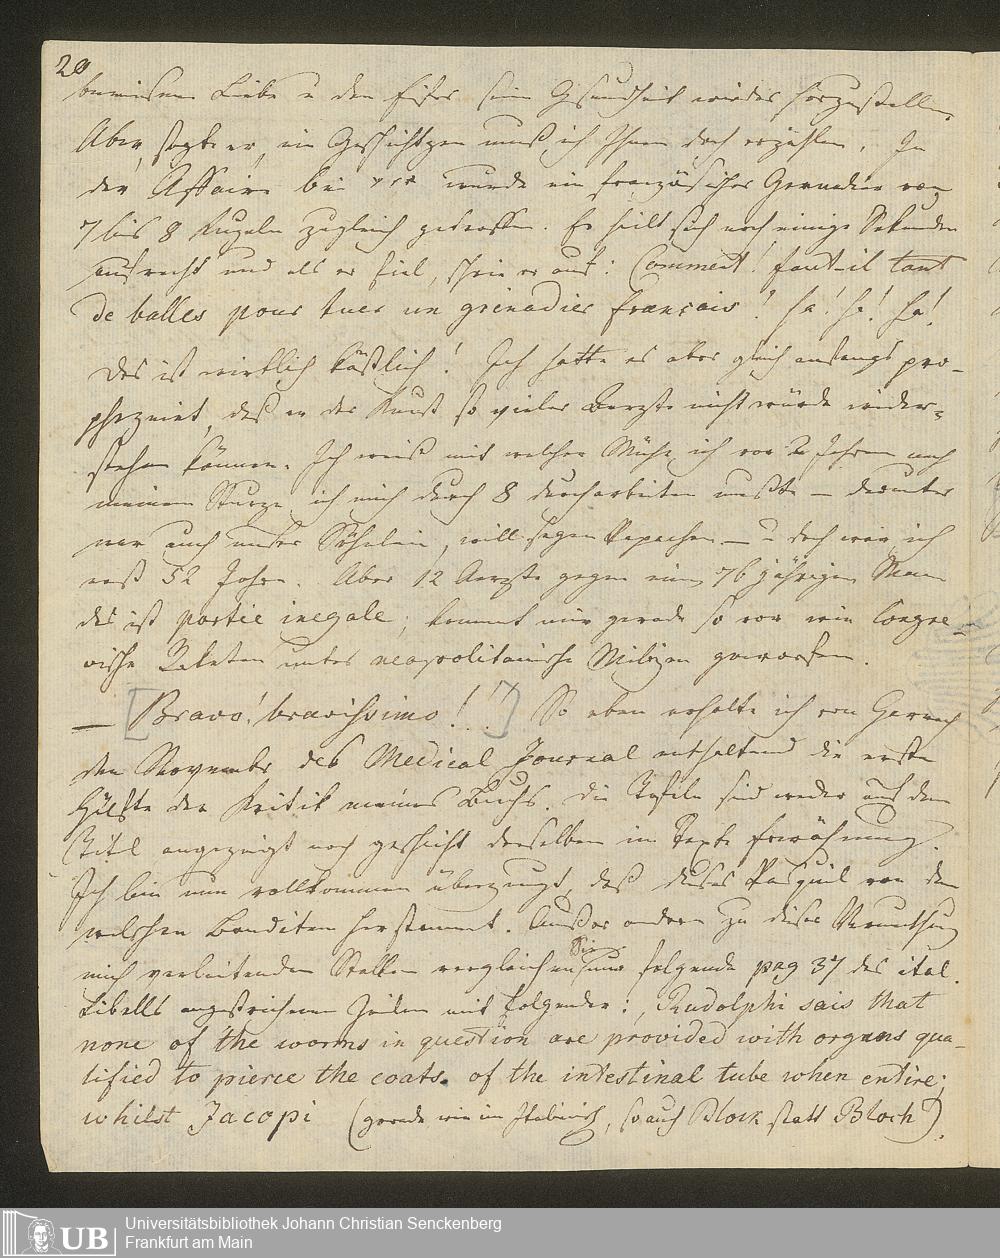 20
bewiesene Liebe u den Eifer seine Gesundheit wieder herzustellen.
Aber, sagte er, ein Geschichtgen muß ich Ihnen doch erzählen. In
der Affaire bei xxx wurde ein französischer Grenadier von
7 bis 8 Kugeln zugleich getroffen. Er hielt sich noch einige Sekunden
aufrecht und als er fiel, schrie er aus: Comment! faut-il tant
de balles pour tuer un grenadier français! ha! ha! ha!
Das ist wirklich köstlich! Ich hatte es aber gleich anfangs pro-
phezeiet, daß er der Kunst so vieler Aerzte nicht würde wider-
stehen können. Ich weiß mit welcher Mühe ich vor 2 Jahren nach
meinem Sturze ich mich durch 8 durcharbeiten mußte – darunter
war auch unser Söhnlein, will sagen Papachen – u doch war ich
erst 52 Jahre. Aber 12 Aerzte gegen einen 76 jährigen Mann
das ist partie inegale; kommt mir gerade so vor wie Congre-
vische Raketen unter neapolitanische Milizen geworfen.
— [Bravo! bravissimo!!] So eben erhalte ich von Gerrach
den November des Medical Journal enthaltend die erste
Hälfte der Kritik meines Buchs. Die Tafeln sind weder auf dem
Titel angezeigt noch geschieht derselben im Texte Erwähnung.
Ich bin nun vollkommen überzeugt, daß dieses Pasquil von dem
welschen Banditen herstammt. Außer andern zu dieser Vermuthung
mich verleitenden Stellen vergleichen Sie nur folgende pag 37 des ital.
Libells angestrichenen Zeilen mit folgender: Rudolphi sais that
none of the worms in question are provided with organs qua-
lified to pierce the coats of the intestinal tube when entire;
whilst Jacopi (gerade wie im Italienisch, so auch Block statt Bloch).
Universitätsbibliothek Johann Christian Senckenberg
Frankfurt am Main
UB